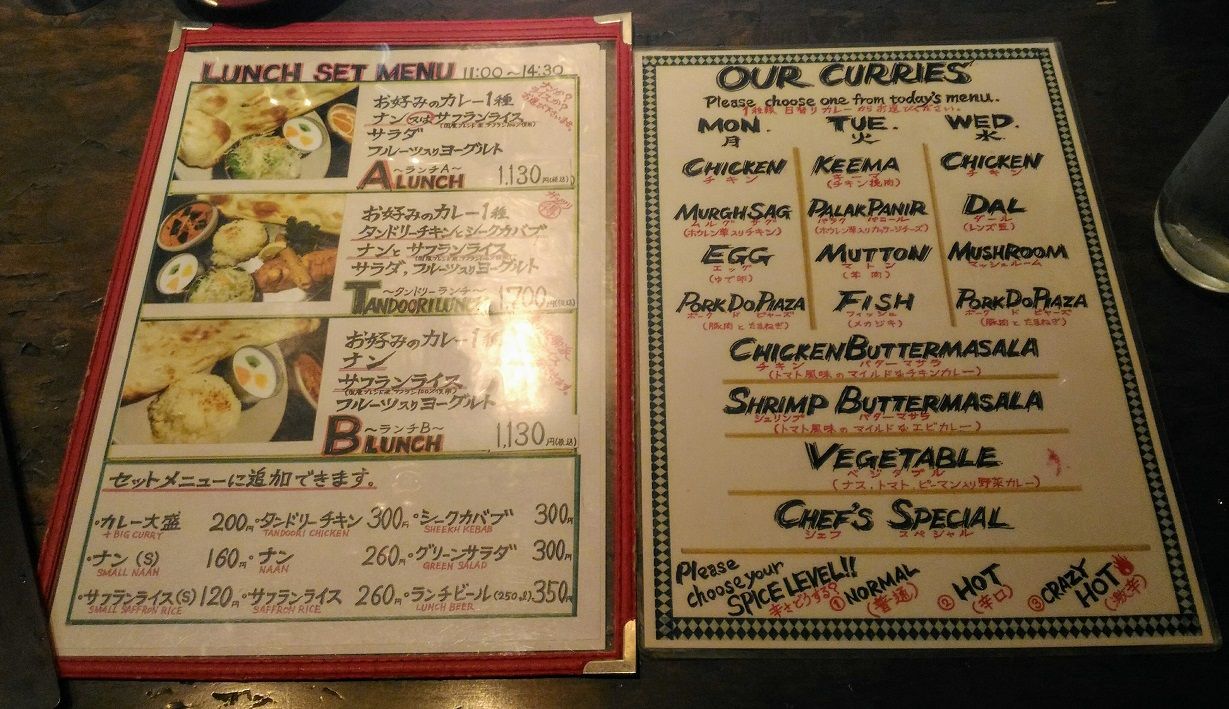 LUNCH SET MENU 11:00〜14:30
お好みのカレー1種
ナン又はサフランライス
サラダ
フルーツ入りヨーグルト
〜ランチA〜
A LUNCH 1,130円(税込)
お好みのカレー1種
タンドリーチキンとシークカバブ
ナンとサフランライス
サラダ、フルーツ入りヨーグルト
〜タンドリーランチ〜
TANDOORI LUNCH 1,700円(税込)
お好みのカレー1種
ナン
サフランライス
フルーツ入りヨーグルト
〜ランチB〜
B LUNCH 1,130円(税込)
セットメニューに追加できます。
・カレー大盛 200円 ・タンドリーチキン 300円 ・シークカバブ 300円
+BIG CURRY TANDOORI CHICKEN SHEEKH KEBAB
・ナン(S) 160円 ・ナン 260円 ・グリーンサラダ 300円
SMALL NAAN NAAN GREEN SALAD
・サフランライス(S) 120円 ・サフランライス 260円 ・ランチビール(250㎖) 350円
SMALL SAFFRON RICE SAFFRON RICE LUNCH BEER
OUR CURRIES
Please choose one from today's menu.
1種類、日替りカレーからお選びください。
MON. TUE. WED.
月 火 水
CHICKEN KEEMA CHICKEN
チキン キーマ チキン
(チキン挽肉)
MURGH SAG PALAK PANIR DAL
ムルグ サグ パラク パニール ダール
(ホウレン草入りチキン) (ホウレン草入りカッテージチーズ) (レンズ豆)
EGG MUTTON MUSHROOM
エッグ マトン マッシュルーム
(ゆで卵) (羊肉)
PORK DO PIAZA FISH PORK DO PIAZA
ポーク ド ピヤーズ フィッシュ ポーク ド ピヤーズ
(豚肉と たまねぎ) (メカジキ) (豚肉と たまねぎ)
CHICKEN BUTTERMASALA
チキン バターマサラ
(トマト風味のマイルドなチキンカレー)
SHRIMP BUTTERMASALA
シュリンプ バターマサラ
(トマト風味のマイルドなエビカレー)
VEGETABLE
ベジタブル
(ナス・トマト、ピーマン入り野菜カレー)
CHEF'S SPECIAL
シェフ スペシャル
Please
choose your
SPICE LEVEL!!
辛さどうする?
① NORMAL ② HOT ③ CRAZY HOT
(普通) (辛口) (激辛)